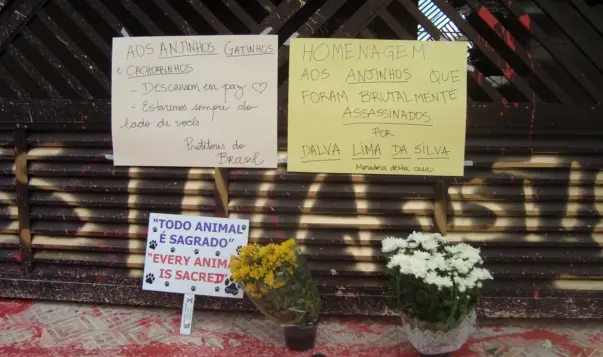 AOS ANJINHOS GATINHOS
E CACHORRINHOS
- Descansem em paz
- Estaremos sempre do
lado de vocês
Protetores do
Brasil
HOMENAGEM
AOS ANJINHOS QUE
FORAM BRUTALMENTE
ASSASSINADOS
POR
DALVA LIMA DA SILVA
Moradora desta casa
"TODO ANIMAL
É SAGRADO"
"EVERY ANIMAL
IS SACRED"